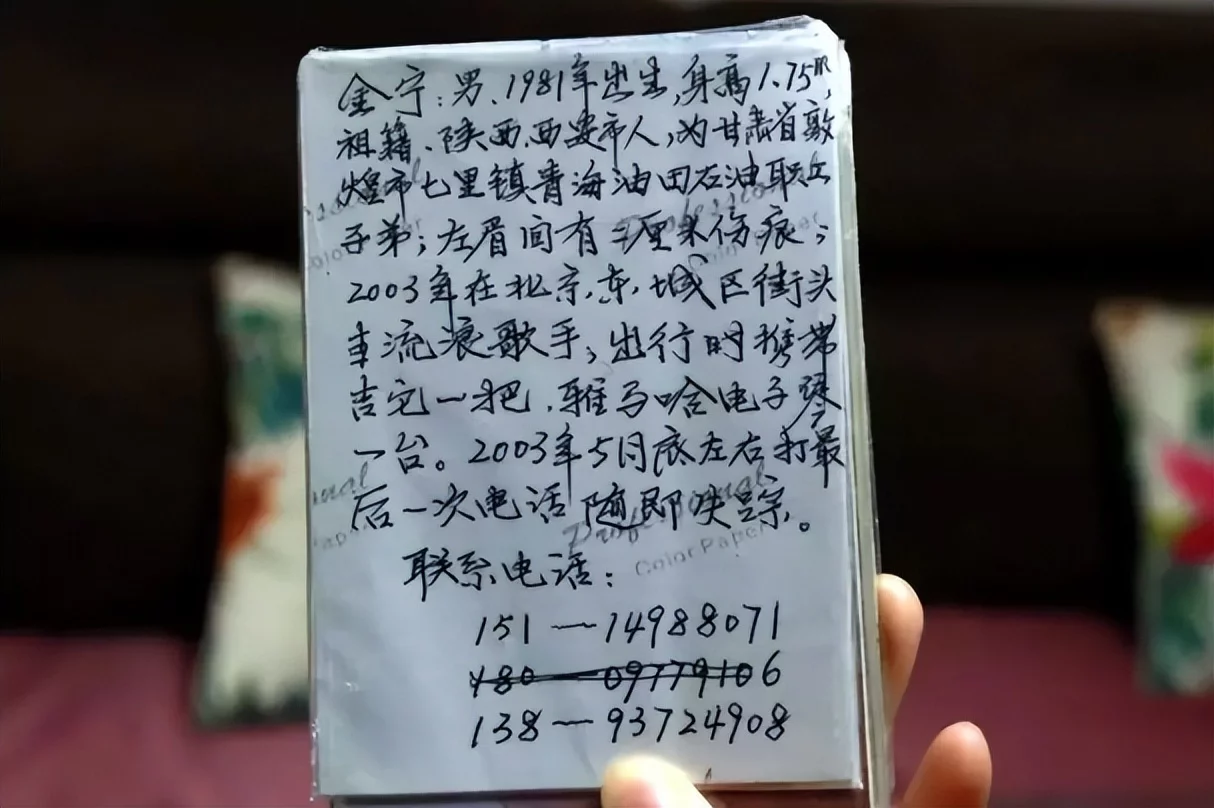 金宁:男、1981年出生,身高1.75M,
祖籍、陕西、西安市人,为甘肃省敦
煌市七里镇青海油田石油职工
子弟;左眉间有二厘米伤痕;
2003年在北京、东城区街头
非流浪歌手,出行时携带
吉它一把,雅马哈电子琴
一台。2003年5月底左右打最
后一次电话随即失踪。
联系电话:
151—14988071
180—09779106
138—93724908
Professional
Color Paper